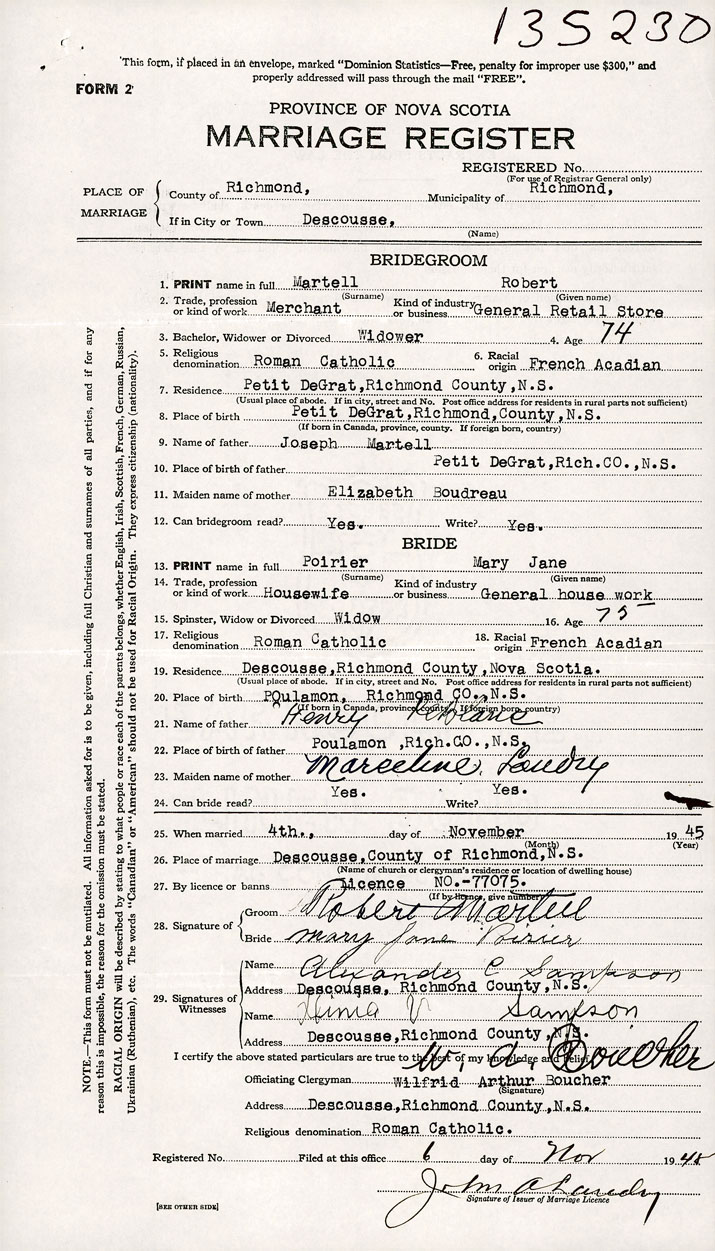 135230
"This form, if placed in an envelope, marked "Dominion Statistics—Free, penalty for improper use $300," and
properly addressed will pass through the mail "FREE".
FORM 2
PROVINCE OF NOVA SCOTIA
MARRIAGE REGISTER
REGISTERED No.
(For use of Registrar General only)
PLACE OF MARRIAGE
County of Richmond, Municipality of Richmond,
If in City or Town Descousse,
(Name)
BRIDEGROOM
1. PRINT name in full Martell Robert
(Surname) (Given name)
2. Trade, profession or kind of work Merchant Kind of industry or business General Retail Store
3. Bachelor, Widower or Divorced Widower 4. Age 74
5. Religious denomination Roman Catholic 6. Racial origin French Acadian
7. Residence Petit DeGrat,Richmond County,N.S.
(Usual place of abode. If in city, street and No. Post office address for residents in rural parts not sufficient)
8. Place of birth Petit DeGrat,Richmond,County,N.S.
(If born in Canada, province, county. If foreign born, country)
9. Name of father Joseph Martell
10. Place of birth of father Petit DeGrat,Rich.CO.,N.S.
11. Maiden name of mother Elizabeth Boudreau
12. Can bridegroom read? Yes. Write? Yes.
BRIDE
13. PRINT name in full Poirier Mary Jane
(Surname) (Given name)
14. Trade, profession or kind of work Housewife Kind of industry or business General house work
15. Spinster, Widow or Divorced Widow 16. Age 75
17. Religious denomination Roman Catholic 18. Racial origin French Acadian
19. Residence Descousse,Richmond County,Nova Scotia.
(Usual place of abode. If in city, street and No. Post office address for residents in rural parts not sufficient)
20. Place of birth POulamon, Richmond CO.,N.S.
(If born in Canada, province, county. If foreign born, country)
21. Name of father Henry
22. Place of birth of father Poulamon ,Rich.CO.,N.S.
23. Maiden name of mother Marceline Landry
24. Can bride read? Yes. Write? Yes.
25. When married 4th., day of November 1945
(Month) (Year)
26. Place of marriage Descousse,County of Richmond,N.S.
(Name of church or clergyman's residence or location of dwelling house)
27. By licence or banns Licence NO.-77075.
(If by licence, give number)
28. Signature of
Groom Robert Martell
Bride Mary Jane Poirier
29. Signatures of Witnesses
Name Alexander C Sampson
Address Descousse, Richmond County,N.S.
Name V Sampson
Address Descousse,Richmond County,N.S.
I certify the above stated particulars are true to the best of my knowledge and belief.
W. A. Boucher
Officiating Clergyman Wilfrid Arthur Boucher
(Signature)
Address Descousse,Richmond County,N.S.
Religious denomination Roman Catholic.
Registered No. Filed at this office 6 day of Nov 1945
John A Landry
Signature of Issuer of Marriage Licence
[SEE OTHER SIDE]
NOTE.—This form must not be mutilated. All information asked for is to be given, including full Christian and surnames of all parties, and if for any
reason this is impossible, the reason for the omission must be stated.
RACIAL ORIGIN will be described by stating to what people or race each of the parents belongs, whether English, Irish, Scottish, French, German, Russian,
Ukrainian (Ruthenian), etc. The words "Canadian" or "American" should not be used for Racial Origin. They express citizenship (nationality).